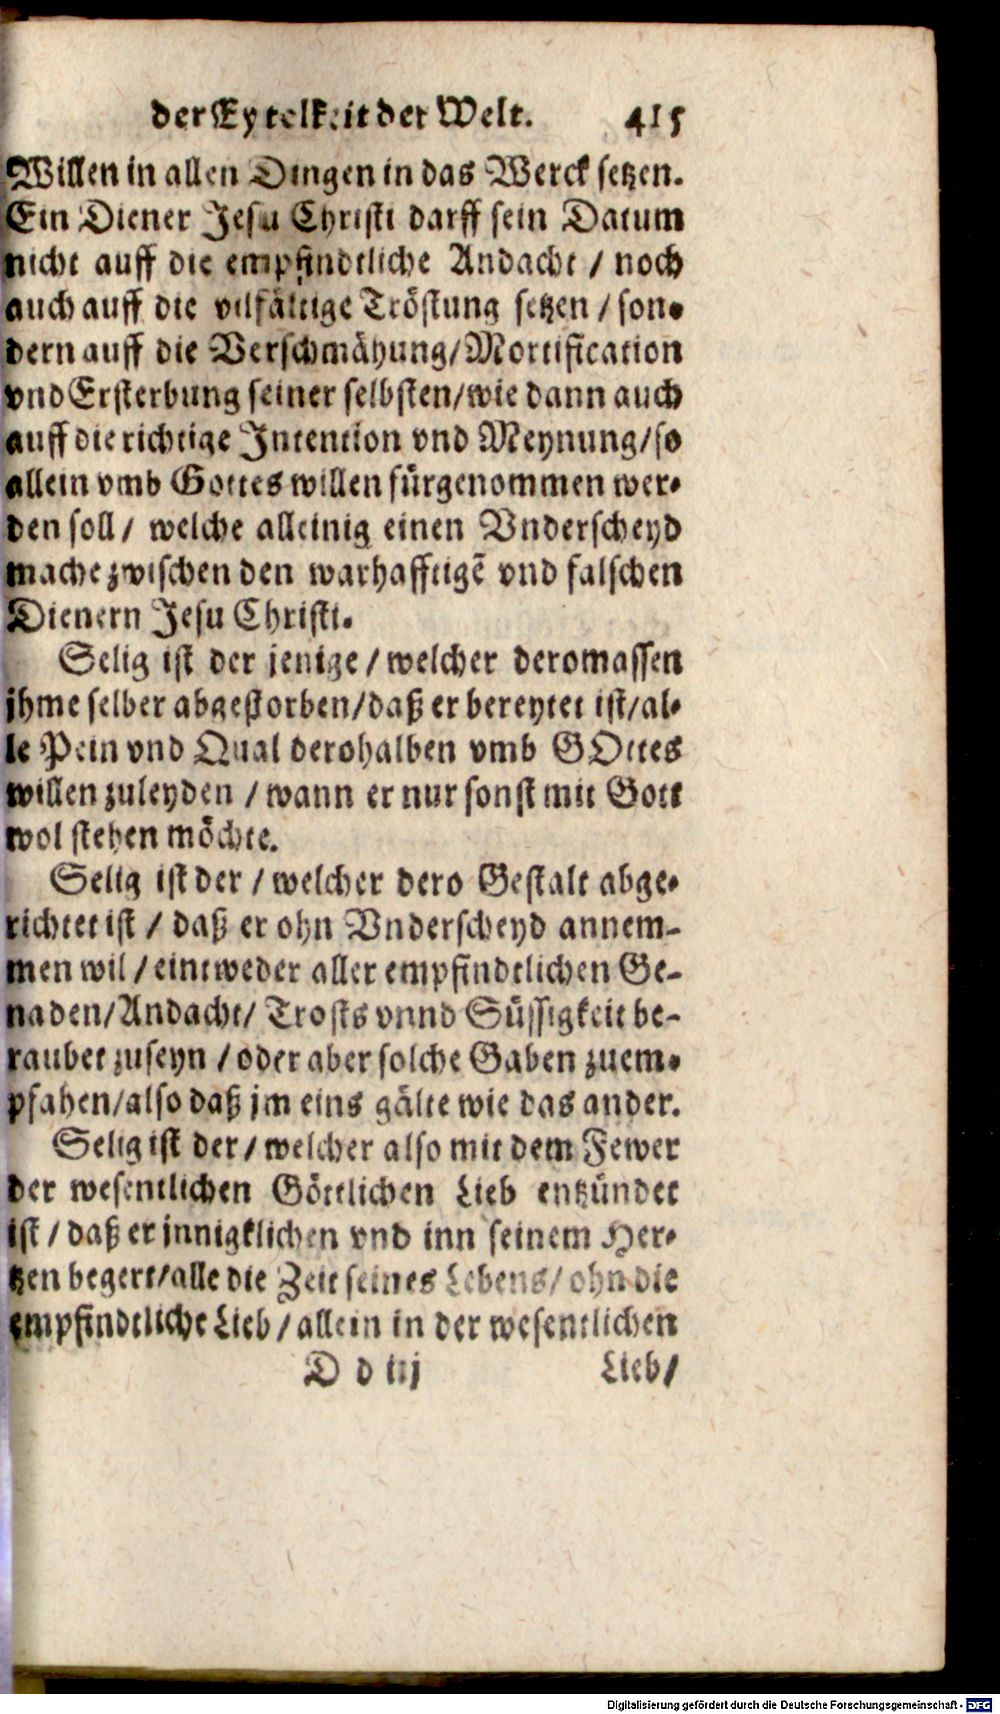 der Eytelkeit der Welt. 415
Willen in allen Dingen in das Werck setzen.
Ein Diener Jesu Christi darff sein Datum
nicht auff die empfindtliche Andacht / noch
auch auff die vilfältige Tröstung setzen / son-
dern auff die Verschmähung/Mortification
vnd Ersterbung seiner selbsten/wie dann auch
auff die richtige Intention vnd Meynung/so
allein vmb Gottes willen fürgenommen wer-
den soll / welche alleinig einen Vnderscheyd
mache zwischen den warhafftigẽ vnd falschen
Dienern Jesu Christi.
Selig ist der jenige / welcher deromassen
jhme selber abgestorben/daß er bereytet ist/al-
le Pein vnd Qual derohalben vmb GOttes
willen zuleyden / wann er nur sonst mit Gott
wol stehen möchte.
Selig ist der / welcher dero Gestalt abge-
richtet ist / daß er ohn Vnderscheyd annem-
men wil / eintweder aller empfindtlichen Ge-
naden/Andacht/ Trosts vnnd Süssigkeit be-
raubet zuseyn / oder aber solche Gaben zuem-
pfahen/also daß jm eins gälte wie das ander.
Selig ist der / welcher also mit dem Fewer
der wesentlichen Göttlichen Lieb entzündet
ist / daß er jnnigklichen vnd inn seinem Her-
tzen begert/alle die Zeit seines Lebens/ ohn die
empfindtliche Lieb / allein in der wesentlichen
D d iij Lieb/
Digitalisierung gefördert durch die Deutsche Forschungsgemeinschaft - DFG